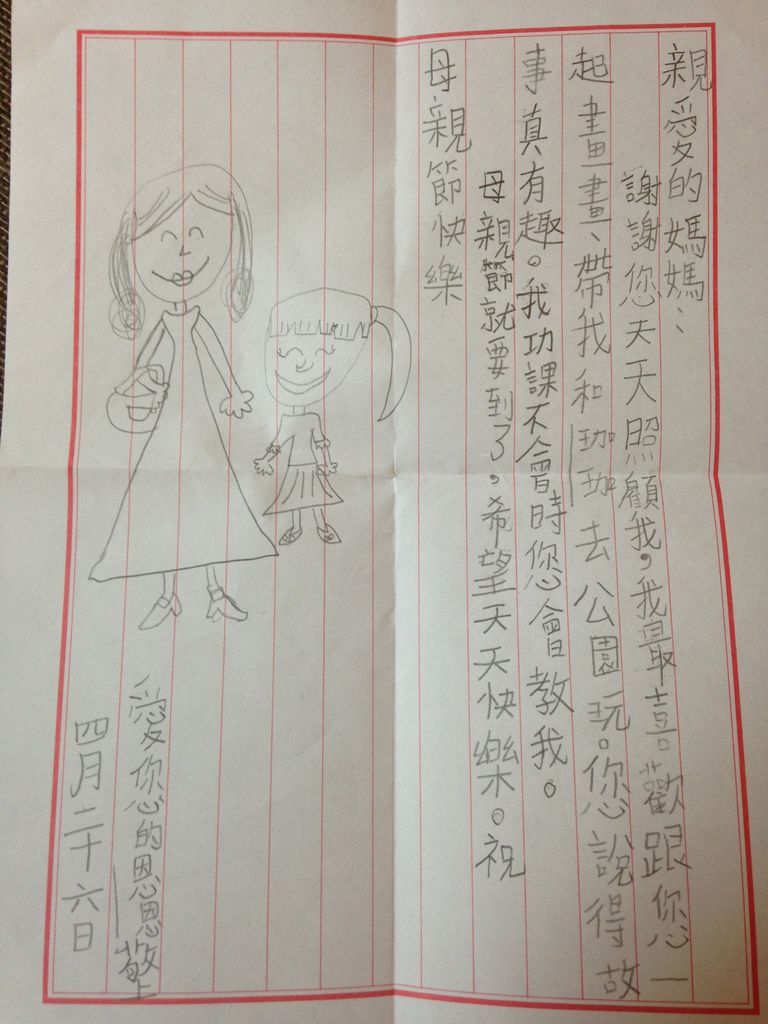 親愛的媽媽：
謝謝您天天照顧我，我最喜歡跟您一
起畫畫、帶我和珈珈去公園玩。您說得故
事真有趣。我功課不會時您會教我。
母親節就要到了，希望天天快樂。祝
母親節快樂
愛您的恩恩敬上
四月二十六日